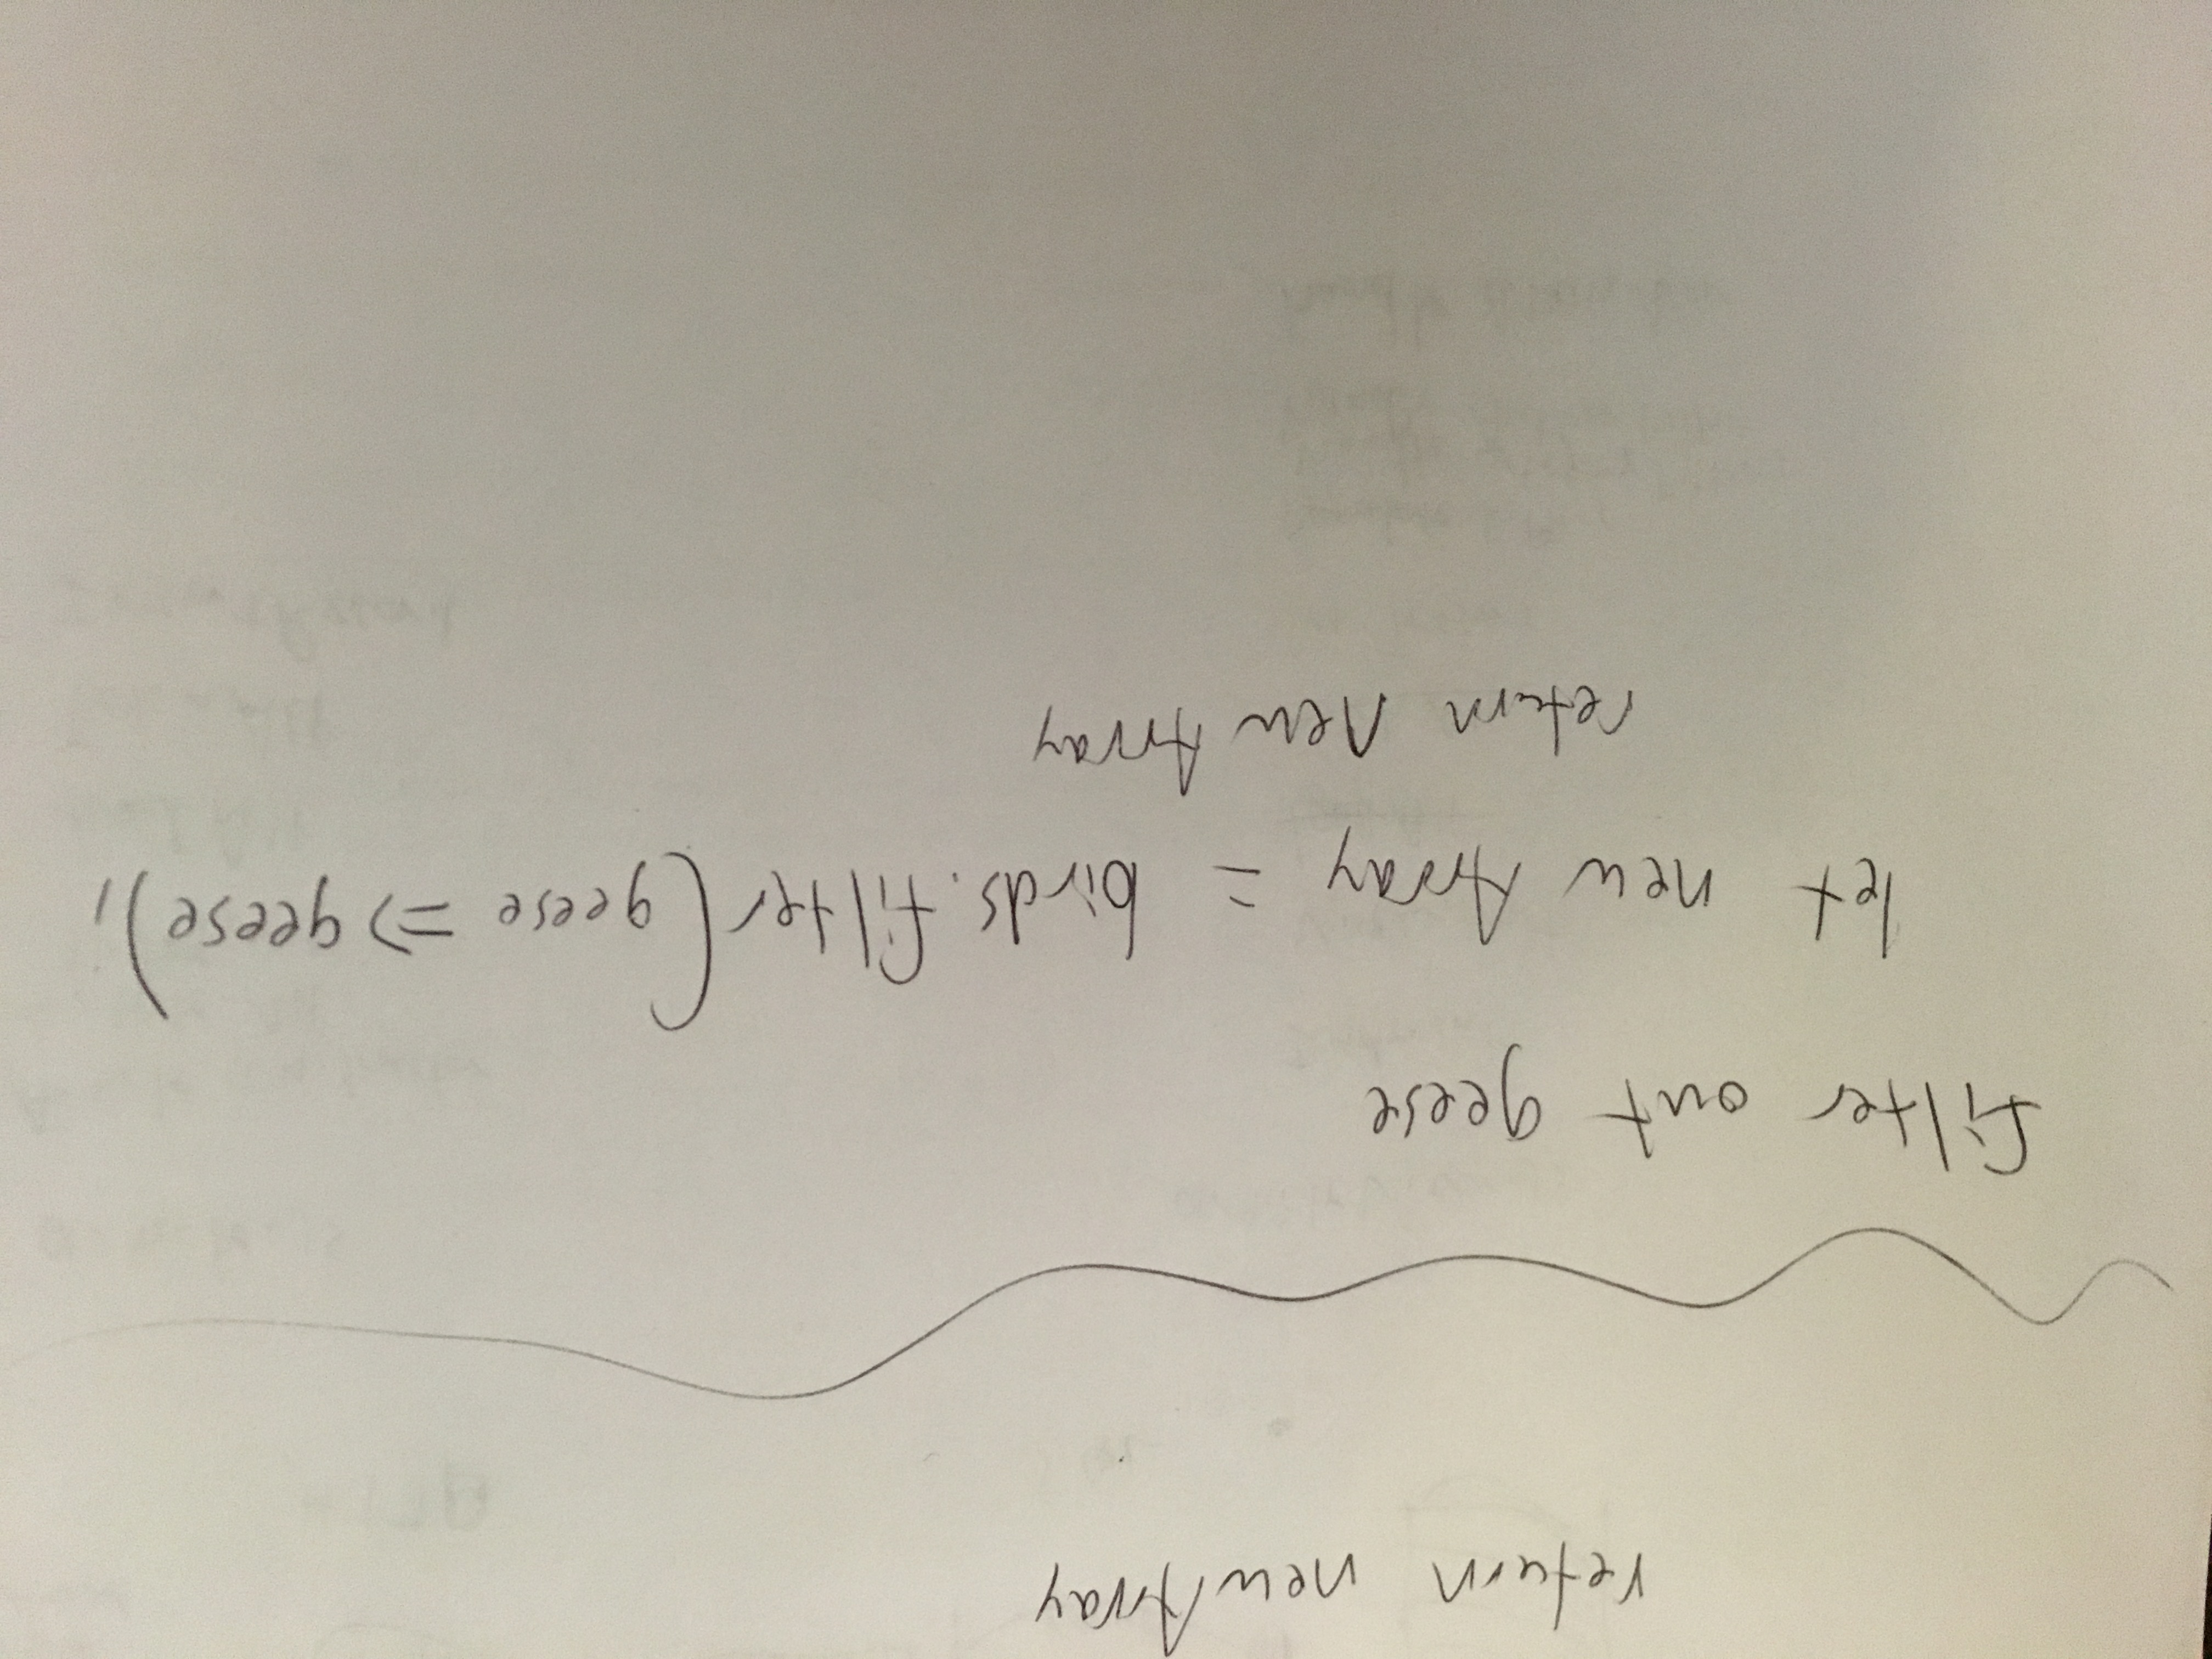 return newArray
filter out geese
let new Array = birds.filter(geese => geese);
return new Array